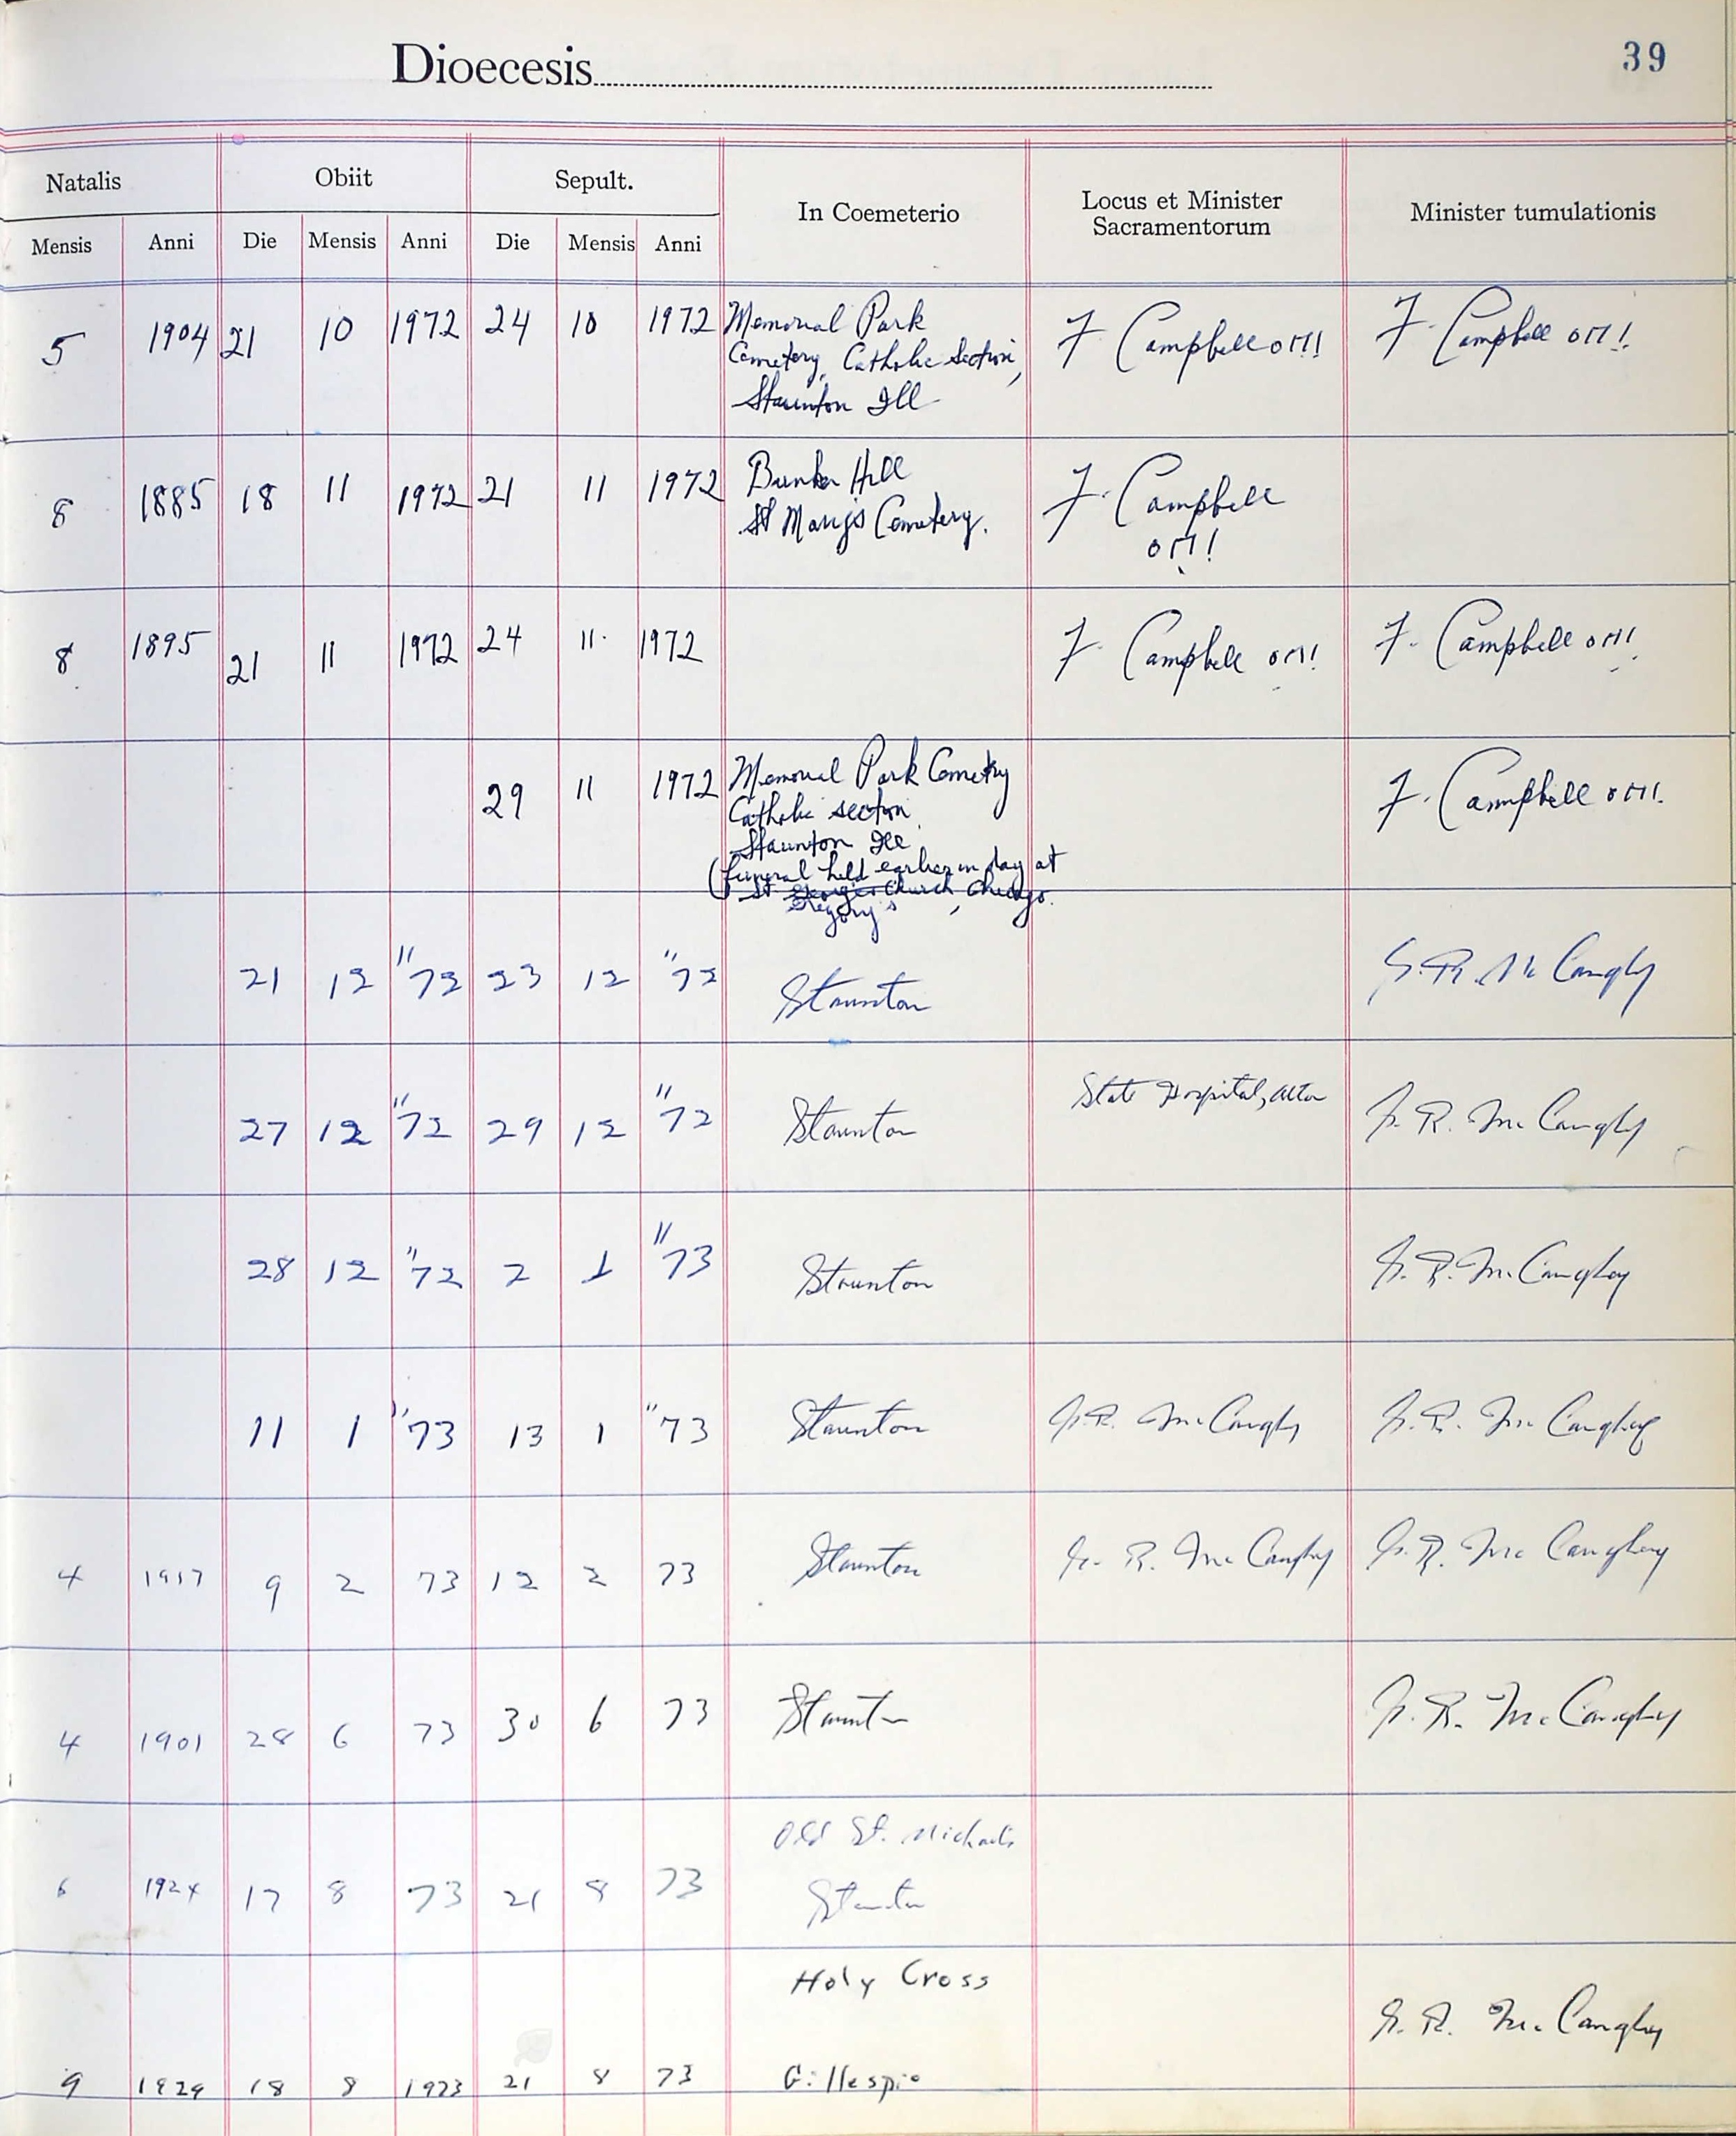 Dioecesis
39
Natalis Obiit Sepult. In Coemeterio Locus et Minister Sacramentorum Minister tumulationis
Mensis Anni Die Mensis Anni Die Mensis Anni
5 1904 21 10 1972 24 10 1972 Memorial Park F. Campbell OMI F. Campbell OMI
Cemetery, Catholic Section,
Staunton Ill
8 1885 18 11 1972 21 11 1972 Bunker Hill F. Campbell
St Mary's Cemetery. OMI
8 1895 21 11 1972 24 11 1972 F. Campbell OMI F. Campbell OMI
29 11 1972 Memorial Park Cemetery F. Campbell OMI
Catholic section
Staunton Ill
(funeral held earlier in day at
St George's Church, Chicago.
Gregory's
21 12 "72 23 12 "72 Staunton G. R. McCaughey
27 12 "72 29 12 "72 Staunton State Hospital, Alton G. R. McCaughey
28 12 "72 2 1 "73 Staunton G. R. McCaughey
11 1 "73 13 1 "73 Staunton G. R. McCaughey G. R. McCaughey
4 1917 9 2 73 12 2 73 Staunton G. R. McCaughey G. R. McCaughey
4 1901 28 6 73 30 6 73 Staunton G. R. McCaughey
Old St. Michael's
6 1924 17 8 73 21 8 73 Staunton
Holy Cross
G. R. McCaughey
9 1929 18 8 1973 21 8 73 Gillespie